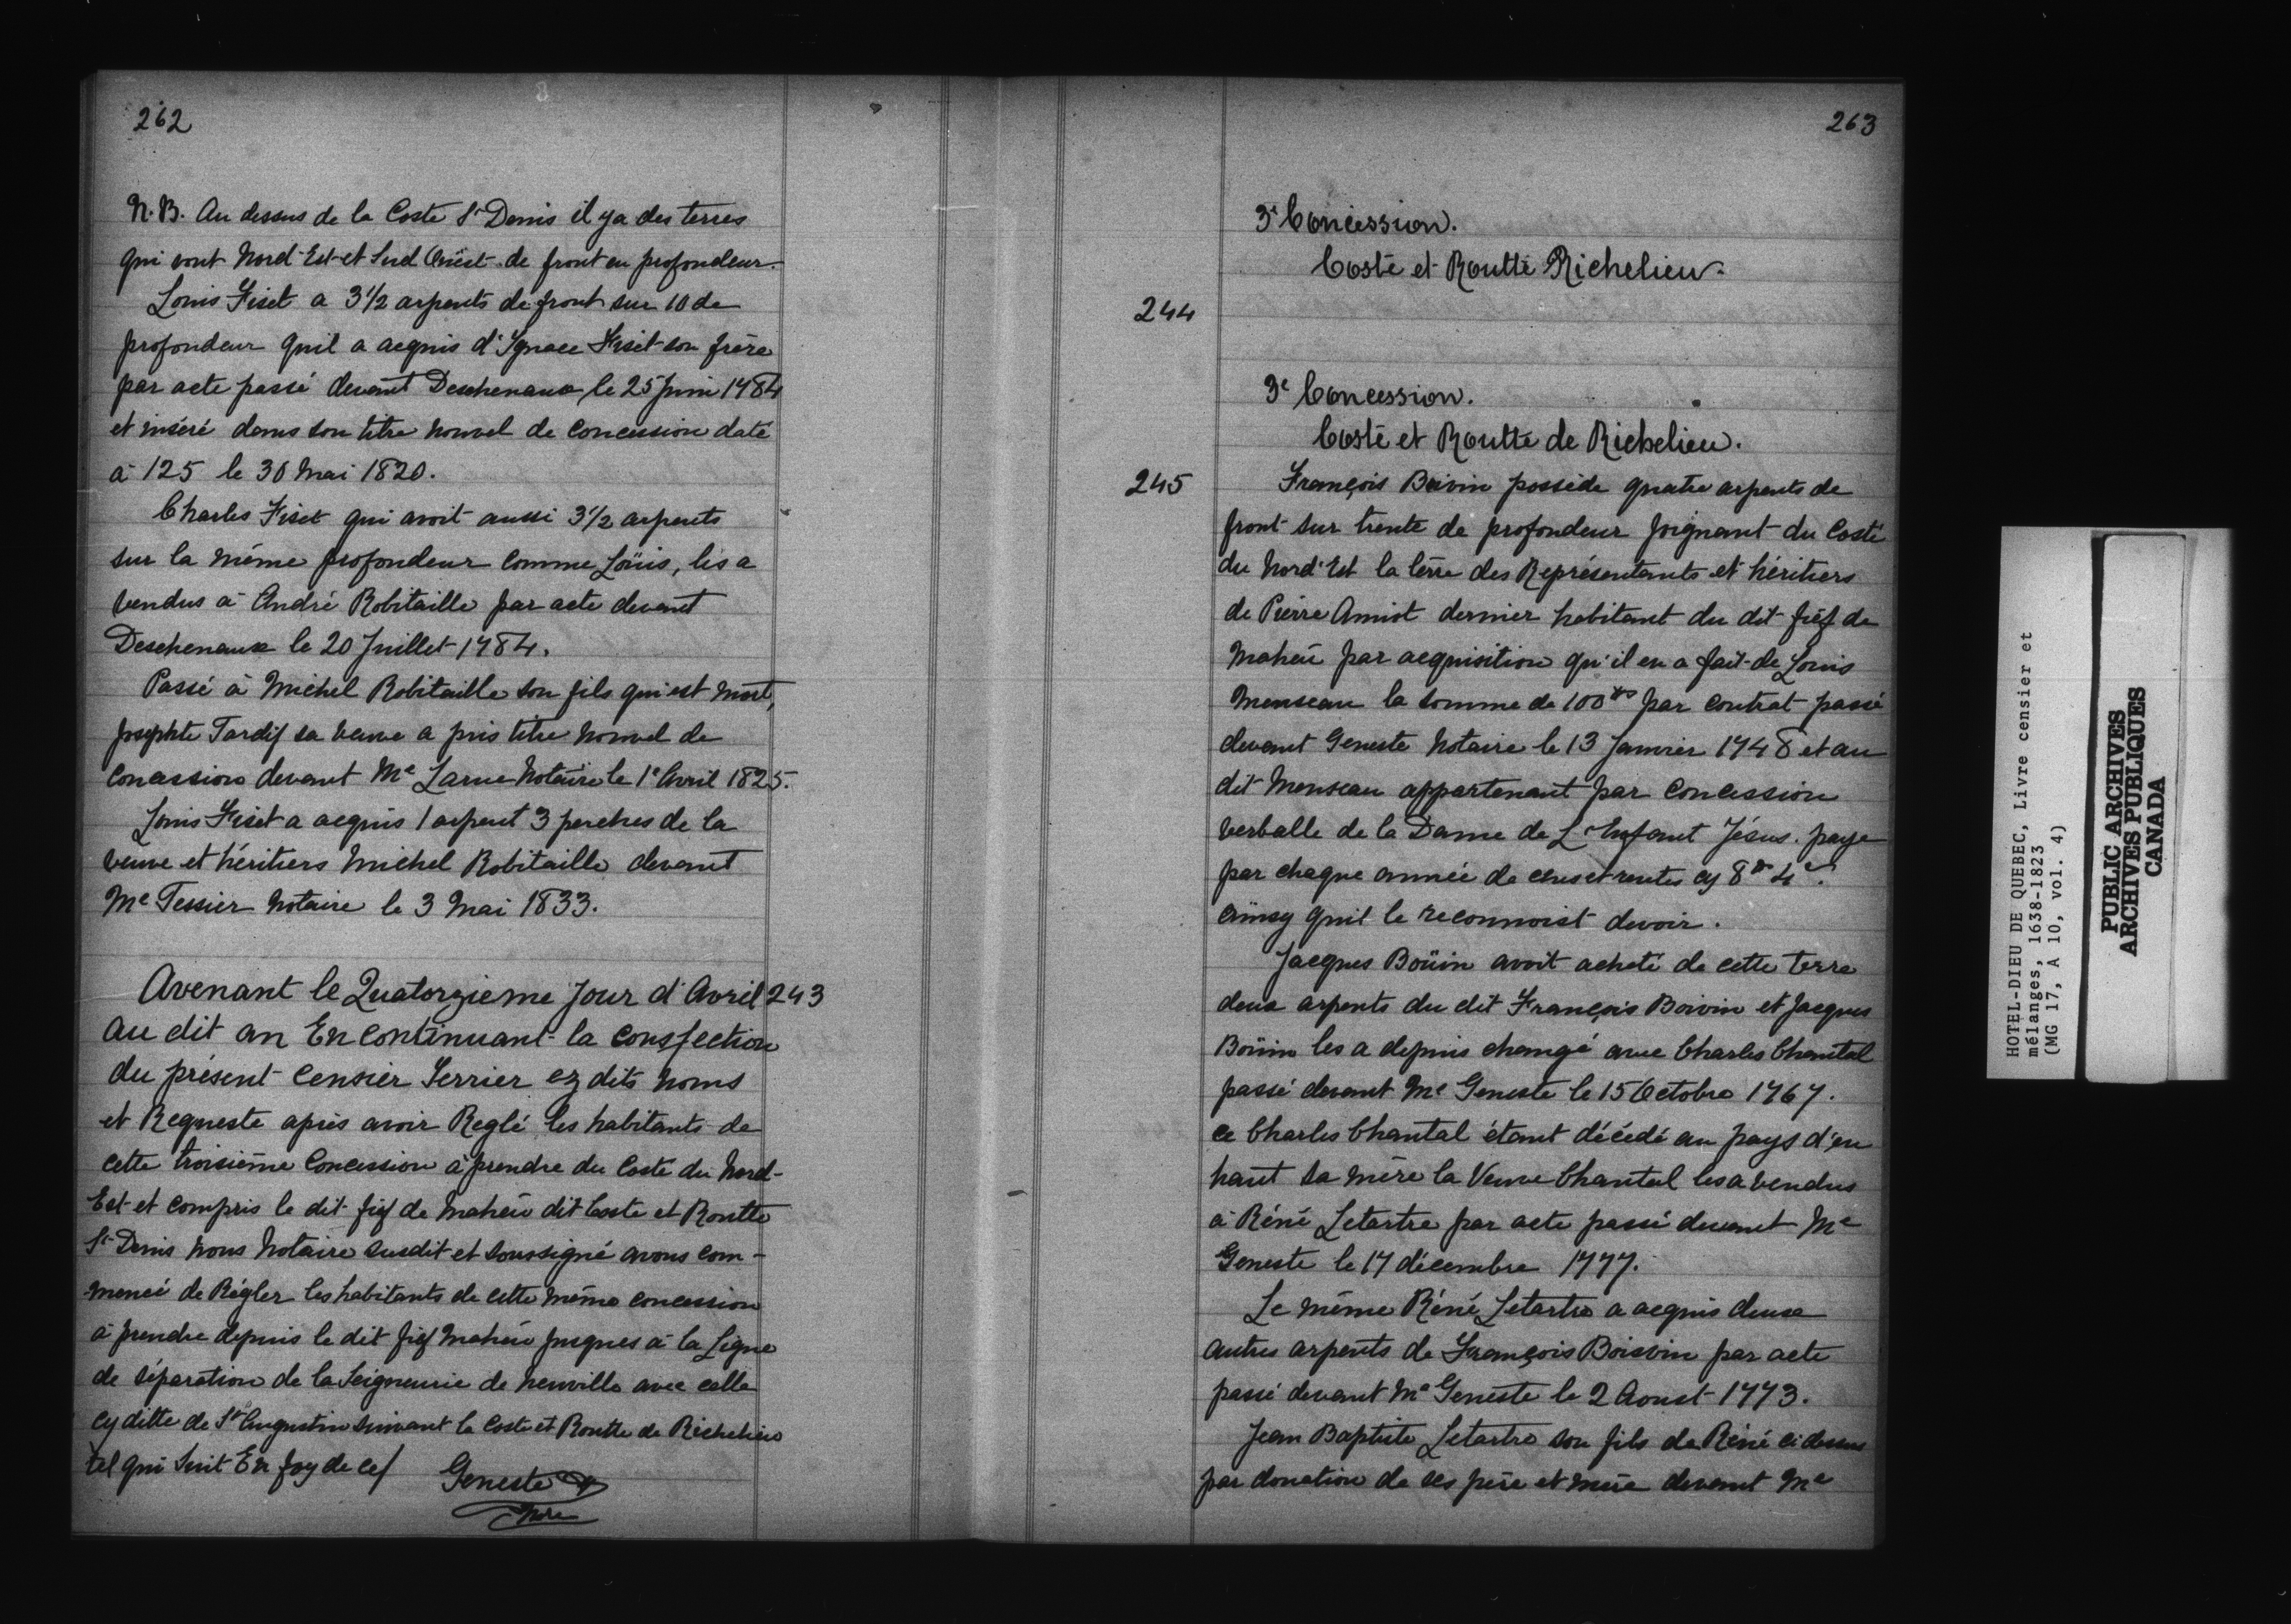 262
N.B. Au dessus de la Coste St Denis il y a des terres
qui vont Nord-Est et Sud Oüest de front en profondeur.
Louis Fiset a 3 1/2 arpents de front sur 10 de
profondeur quil a acquis d'Ignace Fiset son frère
par acte passé devant Deschenaux le 25 Juin 1784
et inséré dans son titre nouvel de concession daté
à 125 le 30 Mai 1820.
Charles Fiset qui avoit aussi 3 1/2 arpents
sur la même profondeur comme Loüis, les a
vendus à André Robitaille par acte devant
Deschenaux le 20 Juillet 1784.
Passé à Michel Robitaille son fils qui est mort,
Josephte Tardif sa veuve a pris titre nouvel de
concession devant Me Larue Notaire le 1e Avril 1825.
Louis Fiset a acquis 1 arpent 3 perches de la
veuve et héritiers Michel Robitaille devant
Me Tessier Notaire le 3 Mai 1833.
243
Avenant le Quatorzieme Jour d'Avril
au dit an En continuant la consfection
du présent Censier Terrier ez dits noms
et Requeste après avoir Reglé les habitants de
cette troisième Concession à prendre du Costé du Nord-
Est et compris le dit fief de Maheü dit Coste et Routte
St Denis Nous Notaire susdit et soussigné avons com-
mencé de Régler les habitants de cette même concession
à prendre depuis le dit fief Maheü jusques à la Ligne
de séparation de la Seigneurie de Neuville avec celle
cy ditte de St Augustin suivant la Coste et Routte de Richelieu
tel qui Suit En foy de ce/ Geneste
Nore
263
3e Concession.
Coste et Routte Richelieu.
244
3e Concession.
Coste et Routte de Richelieu.
245
François Boivin possède quatre arpents de
front sur trente de profondeur joignant du Costé
du Nord'Est la terre des Représentants et héritiers
de Pierre Amiot dernier habitant du dit fief de
Maheü par acquisition qu'il en a fait de Louis
Menseau la somme de 100 par contrat passé
devant Geneste Notaire le 13 Janvier 1748 et au
dit Menseau appartenant par Concession
verballe de la Dame de L'Enfant Jésus. paye
par chaque année de cens et rentes cy 8 4
ainsy quil le reconnoist devoir.
Jacques Boüin avoit acheté de cette terre
deux arpents du dit François Boivin et Jacques
Boüin les a depuis changé avec Charles Chantal
passé devant Me Geneste le 15 Octobre 1767.
ce Charles Chantal étant décédé au pays d'en
haut sa mère la Veuve Chantal les a vendus
à Réné Letartre par acte passé devant Me
Geneste le 17 décembre 1777.
Le même Réné Letartre a acquis deux
autres arpents de François Boisvin par acte
passé devant Me Geneste le 2 Aoust 1773.
Jean Baptiste Letartre son fils de Réné ci dessus
par donation de ses père et mère devant Me
HOTEL-DIEU DE QUEBEC, Livre censier et
mélanges, 1638-1823
(MG 17, A 10, vol. 4)
PUBLIC ARCHIVES
ARCHIVES PUBLIQUES
CANADA